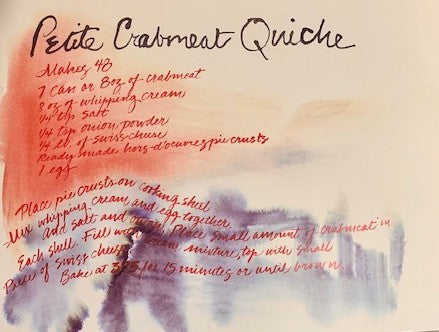 Petite Crabmeat Quiche
Makes 48
1 can or 8oz of crabmeat
8 oz of whipping cream
1/4 tsp salt
1/4 tsp onion powder
1/4 lb. of swiss cheese
Ready made hors-d'ocuvres pie crusts
1 egg
Place pie crusts on cooking sheet
Mix whipping cream and egg together.
Add salt and onion. Place small amount of crabmeat in
Each shell. Fill with cream mixture, top with small
Piece of swiss cheese
Bake at for 15 minutes or until brown.